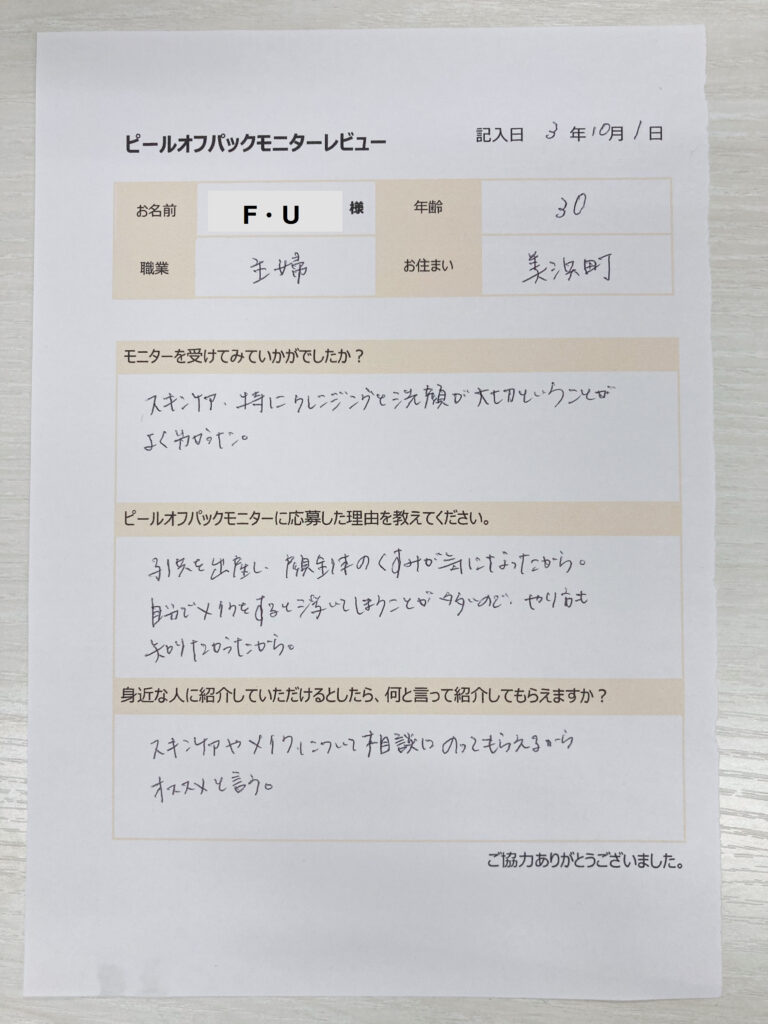 ピールオフパックモニターレビュー
記入日 3 年 10月 1 日
お名前 F・U 様 年齢 30
職業 主婦 お住まい 美浜町
モニターを受けてみていかがでしたか？
スキンケア、特にクレンジングと洗顔が大切ということが
よく分かった。
ピールオフパックモニターに応募した理由を教えてください。
子供を出産し、顔全体のくすみが気になったから。
自分でメイクをすると浮いてしまうことが多いので、やり方も
知りたかったから。
身近な人に紹介していただけるとしたら、何と言って紹介してもらえますか？
スキンケアやメイクについて相談にのってもらえるから
オススメと言う。
ご協力ありがとうございました。